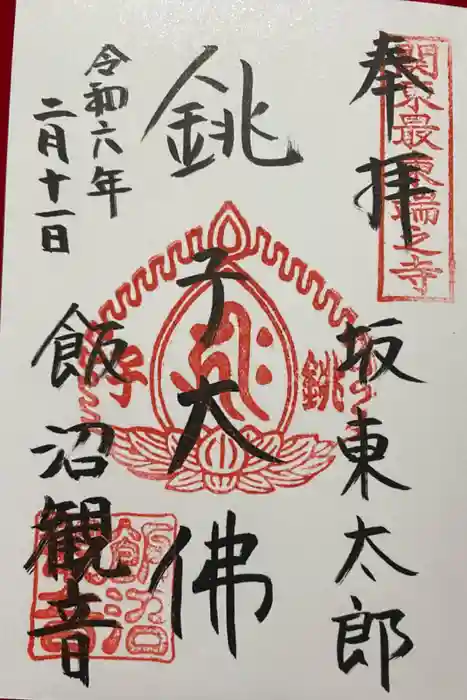 奉拝
関東最東端之寺
坂東太郎
銚子大佛
銚子
令和六年
二月十一日
飯沼観音